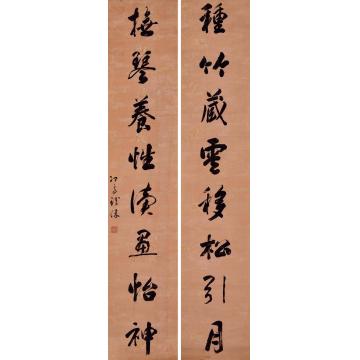 種竹藏雲移松引月
撫琴養性讀畫怡神